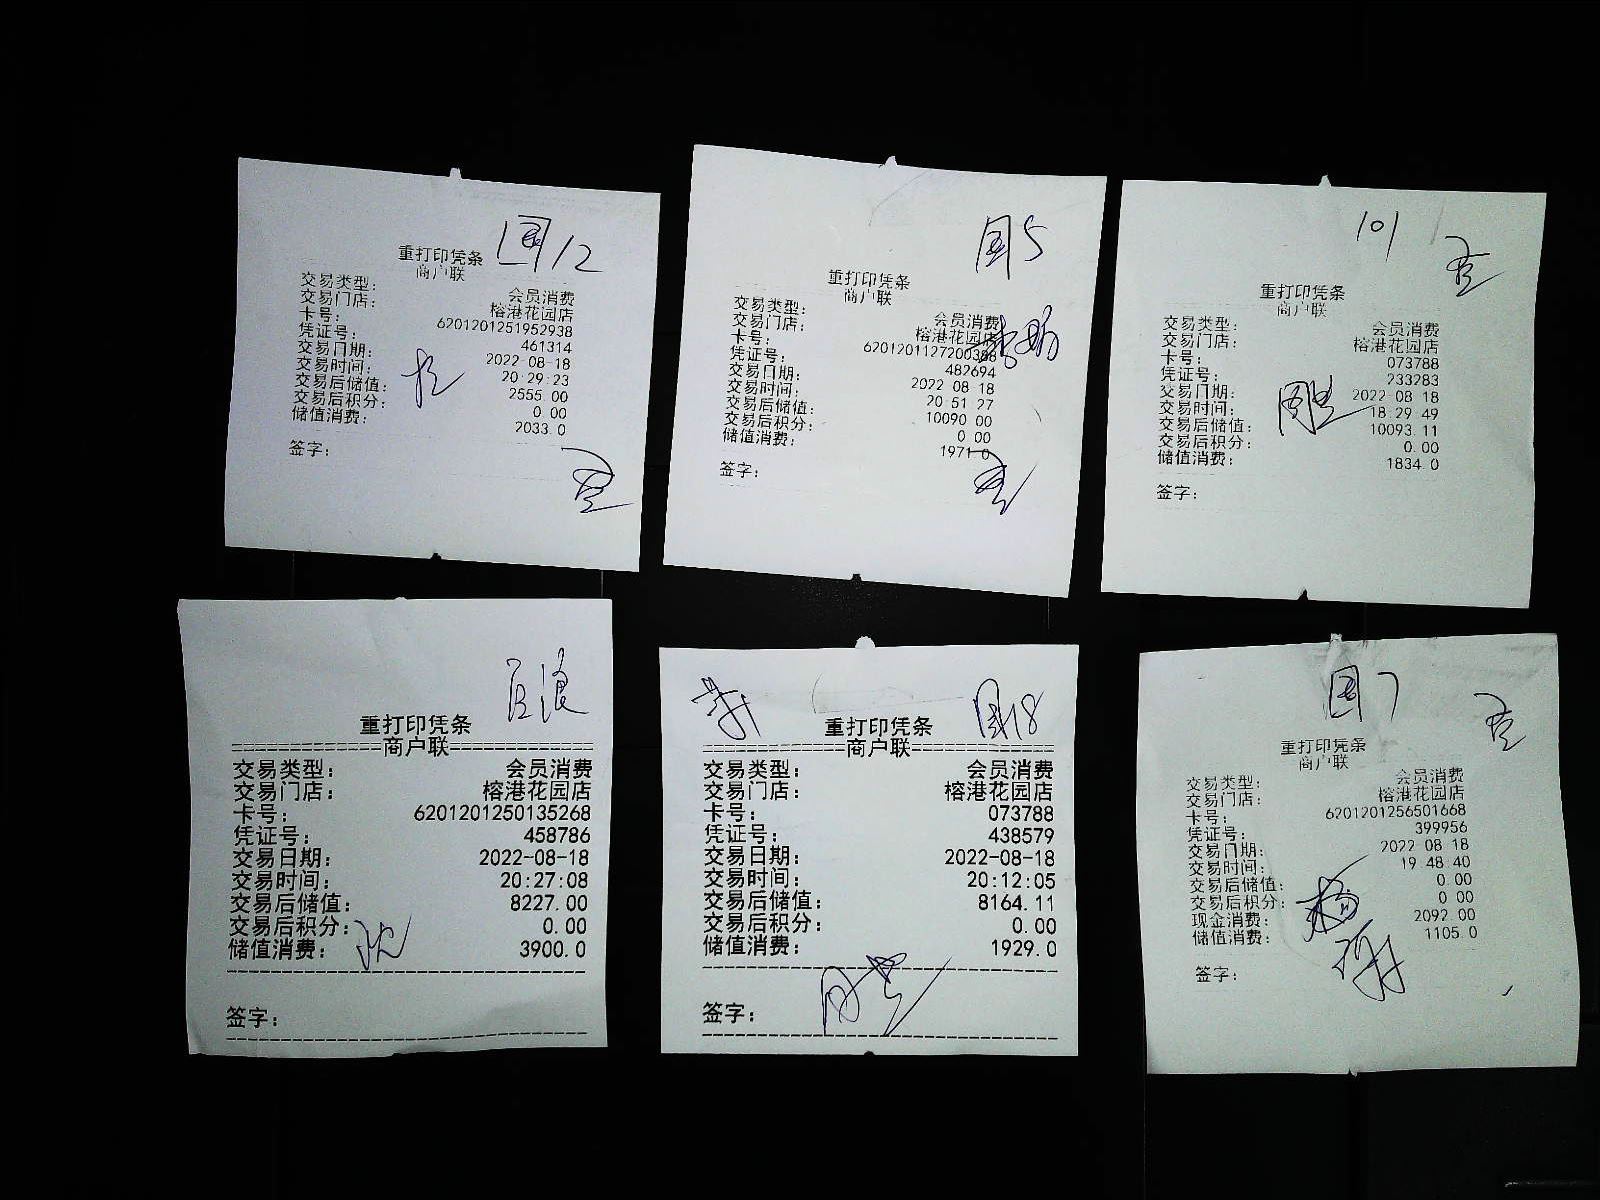 園12
重打印凭条
商户联
交易类型： 会员消费
交易门店： 榕港花园店
卡号： 6201201251952938
凭证号： 461314
交易日期： 2022-08-18
交易时间： 20:29:23
交易后储值： 2555.00
交易后积分： 0.00
储值消费： 2033.0
签字：
園5
重打印凭条
商户联
交易类型： 会员消费
交易门店： 榕港花园店
卡号： 6201201127200388
凭证号： 482694
交易日期： 2022 08 18
交易时间： 20 51 27
交易后储值： 10090 00
交易后积分： 0 00
储值消费： 1971 0
签字：
101
重打印凭条
商户联
交易类型： 会员消费
交易门店： 榕港花园店
卡号： 073788
凭证号： 233283
交易日期： 2022-08 18
交易时间： 18:29 49
交易后储值： 10093.11
交易后积分： 0.00
储值消费： 1834.0
签字：
重打印凭条
商户联
交易类型： 会员消费
交易门店： 榕港花园店
卡号： 6201201250135268
凭证号： 458786
交易日期： 2022-08-18
交易时间： 20:27:08
交易后储值： 8227.00
交易后积分： 0.00
储值消费： 3900.0
签字：
園18
重打印凭条
商户联
交易类型： 会员消费
交易门店： 榕港花园店
卡号： 073788
凭证号： 438579
交易日期： 2022-08-18
交易时间： 20:12:05
交易后储值： 8164.11
交易后积分： 0.00
储值消费： 1929.0
签字：
園7
重打印凭条
商户联
交易类型： 会员消费
交易门店： 榕港花园店
卡号： 6201201256501668
凭证号： 399956
交易日期： 2022 08 18
交易时间： 19 48 40
交易后储值： 0.00
交易后积分： 0 00
现金消费： 2092 00
储值消费： 1105 0
签字：